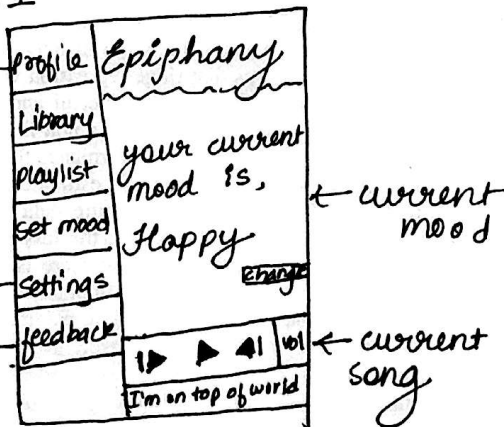 profile
Library
playlist
set mood
settings
feedback
Epiphany
your current
mood is,
Happy
change
vol
I'm on top of world
current
mood
current
song